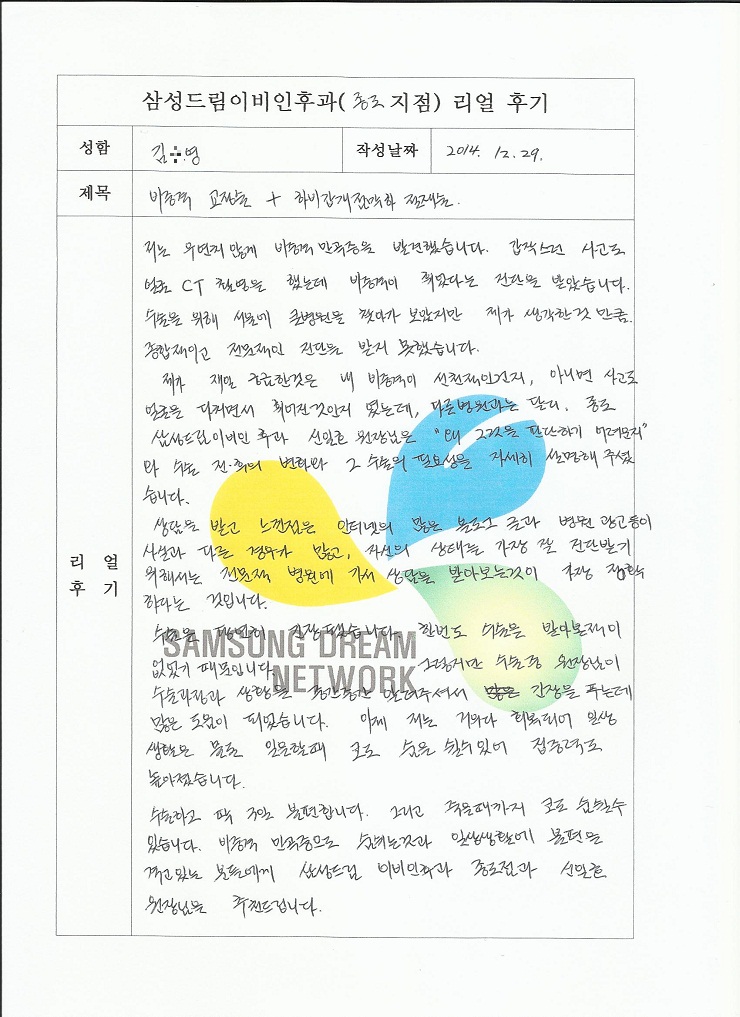 삼성드림이비인후과( 종로 지점) 리얼 후기
성함 김 영 작성날짜 2014. 12. 29.
제목 비중격 교정술 + 하비갑개점막하 절제술.
리 얼
후 기
저는 우연치 않게 비중격 만곡증을 발견했습니다. 갑작스런 사고로
얼굴 CT 촬영을 했는데 비중격이 휘었다는 진단을 받았습니다.
수술을 위해 서울에 큰병원을 찾아가 보았지만 제가 생각한것 만큼.
종합적이고 전문적인 진단을 받지 못했습니다.
제가 제일 궁금한것은 내 비중격이 선천적인건지, 아니면 사고로
얼굴을 다치면서 휘어진것인지 였는데, 다른병원과는 달리. 종로
삼성드림이비인후과 선일훈 원장님은 "왜 그것을 판단하기 어려운지"
와 수술 전·후의 변화와 그 수술의 필요성을 자세히 설명해 주셨
습니다.
상담을 받고 느낀점은 인터넷의 많은 블로그 글과 병원 광고들이
사실과 다른 경우가 많고, 자신의 상태를 가장 잘 진단받기
위해서는 전문적 병원에 가서 상담을 받아보는것이 가장 정확
하다는 것입니다.
수술은 당연히 긴장됐습니다. 한번도 수술을 받아본적이
없었기 때문입니다. 그렇지만 수술중 원장님이
SAMSUNG DREAM
NETWORK
수술과정과 상황을 중간중간 알려주셔서 긴장을 푸는데
많은 도움이 되었습니다. 이제 저는 거의다 회복되어 일상
생활은 물론 일을할때 코로 숨을 쉴수있어 집중력도
높아졌습니다.
수술하고 딱 3일 불편합니다. 그리고 죽을때까지 코로 숨쉴수
있습니다. 비중격 만곡증으로 숨쉬는것과 일상생활에 불편을
겪고있는 분들에게 삼성드림 이비인후과 종로점과 선일훈
원장님을 추천드립니다.